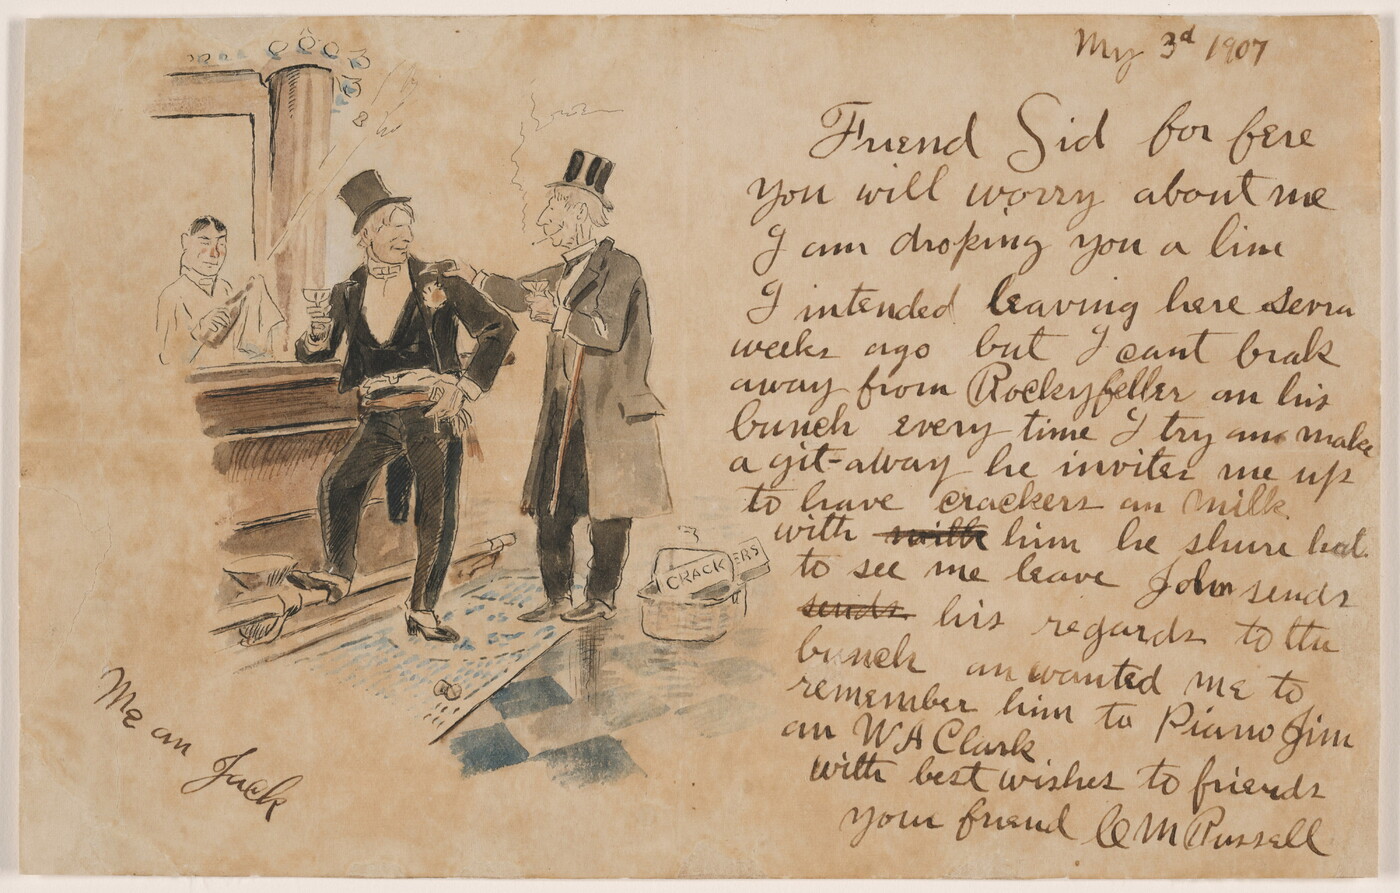 My 3d 1907
Friend Sid for fere
you will worry about me
I am droping you a line
I intended leaving here sevra
weeks ago but I cant brak
away from Rockyfeller an his
bunch every time I try an make
a git-away he invites me up
to have crackers an milk
with milk him he shure hat.
to see me leave John sends
sends his regards to the
bunch an wanted me to
remember him to Piano Jim
an W A Clark
with best wishes to friends
your friend C M Russell
CRACK
ERS
Me an Jack